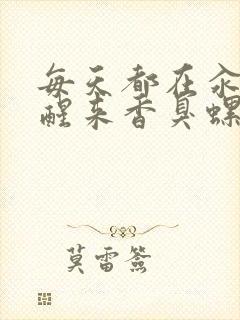 每天都在汆
醒来香臭螺
莫雷签